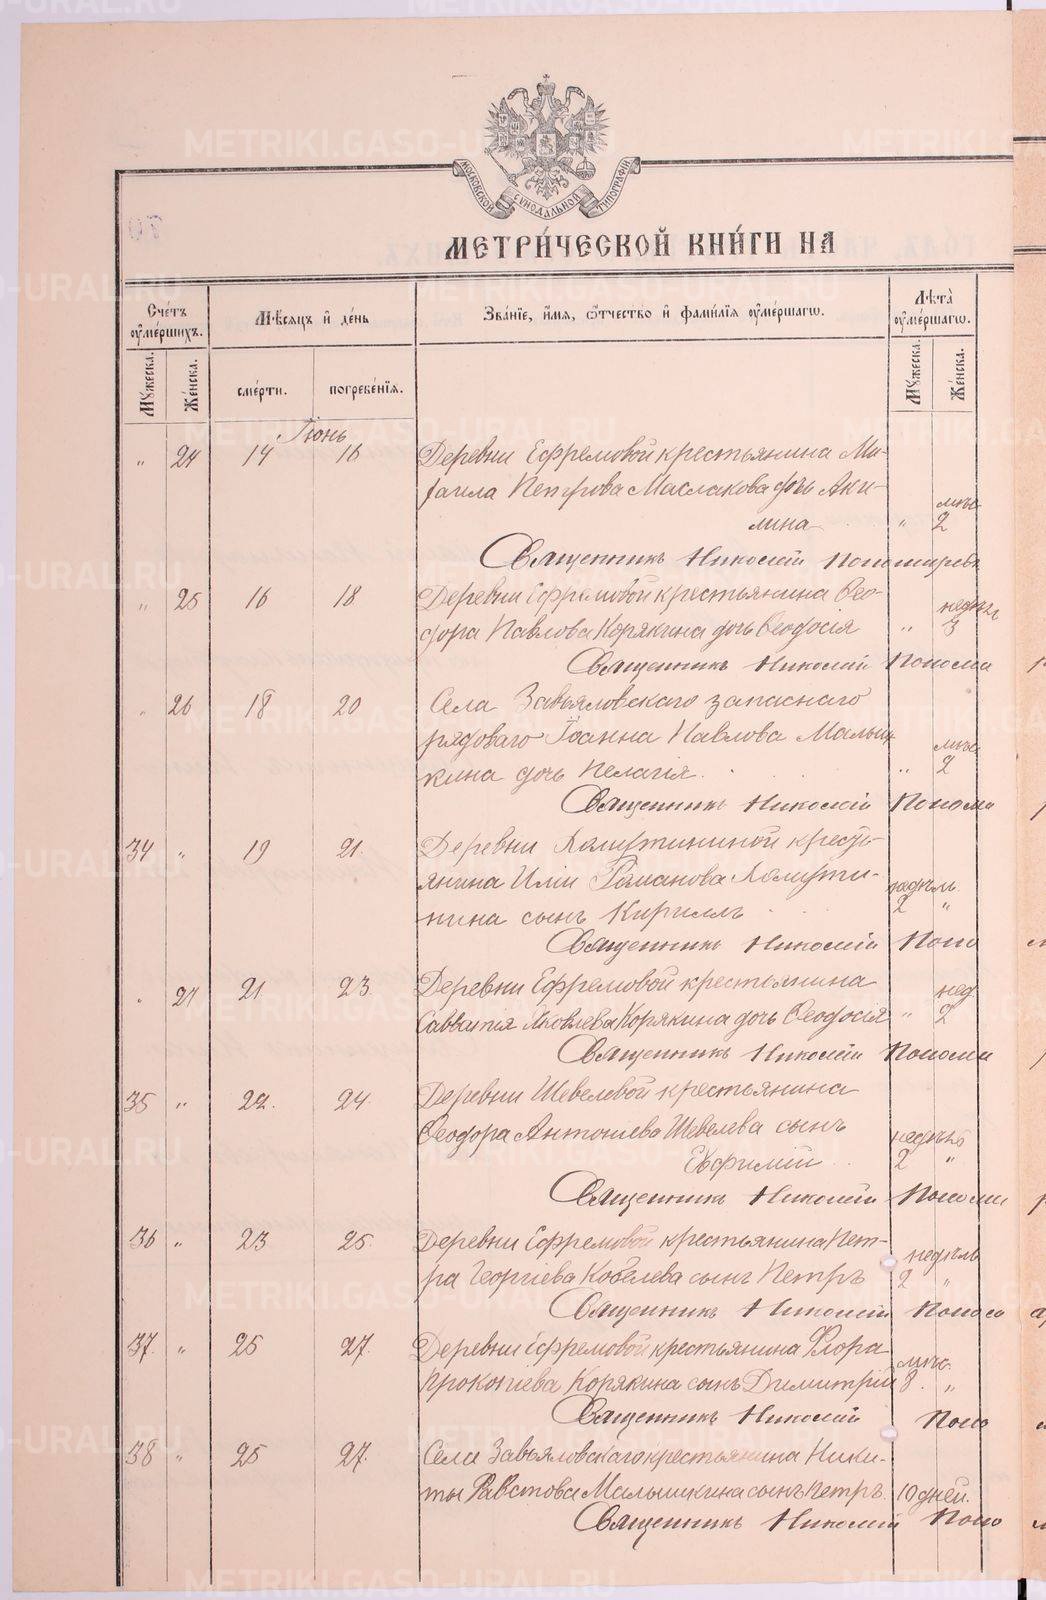 МОСКОВСКОЙ СУНОДАЛЬНОЙ ТИПОГРАФІИ
МЕТРИ́ЧЕСКОЙ КНИ́ГИ НА
Сче́тъ ѹ҆ме́ршихъ.
Мѣ́сяцъ и҆ де́нь
Зва́нїе, и҆́мѧ, ѻ҆́тчество и҆ фами́лїѧ ѹ҆ме́ршагѡ.
Лѣта̀ ѹ҆ме́ршагѡ.
Мꙋ́жеска.
Же́нска.
сме́рти.
погребе́нїѧ.
Мꙋ́жеска.
Же́нска.
Іюнь
" 24 14 16 Деревни Ефремовой крестьянина Ми-
хаила Петрова Маслакова дочь Аки-
мѣс.
лина " 2
Священникъ Николай Пономаревъ
" 25 16 18 Деревни Ефремовой крестьянина Ѳео-
недѣль
дора Павлова Корякина дочь Ѳеодосія " 3
Священникъ Николай Понома
" 26 18 20 Села Завьяловскаго запаснаго
рядоваго Іоанна Павлова Малыш-
мѣс.
кина дочь Пелагія " 2
Священникъ Николай Понома
34 " 19 21. Деревни кресть-
янина Иліи Романова
недѣль
сынъ Кириллъ 2 "
Священникъ Николай Поно
" 27 21 23 Деревни Ефремовой крестьянина
нед.
Савватія Яковлева Корякина дочь Ѳеодосія " 2
Священникъ Николай Понома
35 " 22. 24. Деревни Шевелевой крестьянина
Ѳеодора Антоніева Шевелева сынъ
недѣль
Евфимій 2 "
Священникъ Николай Понома
36 " 23 25. Деревни Ефремовой крестьянина Пет-
недѣль
ра Георгіева Кобелева сынъ Петръ 2 "
Священникъ Николай Поном
37. " 25 27. Деревни Ефремовой крестьянина Флора
мѣс.
Прокопіева Корякина сынъ Димитрій 8. "
Священникъ Николай Поно
38 " 25 27. Села Завьяловскаго крестьянина Ники-
ты Малышкина сынъ Петръ. 10 дней.
Священникъ Николай Поно
METRIKI.GASO-URAL.RU